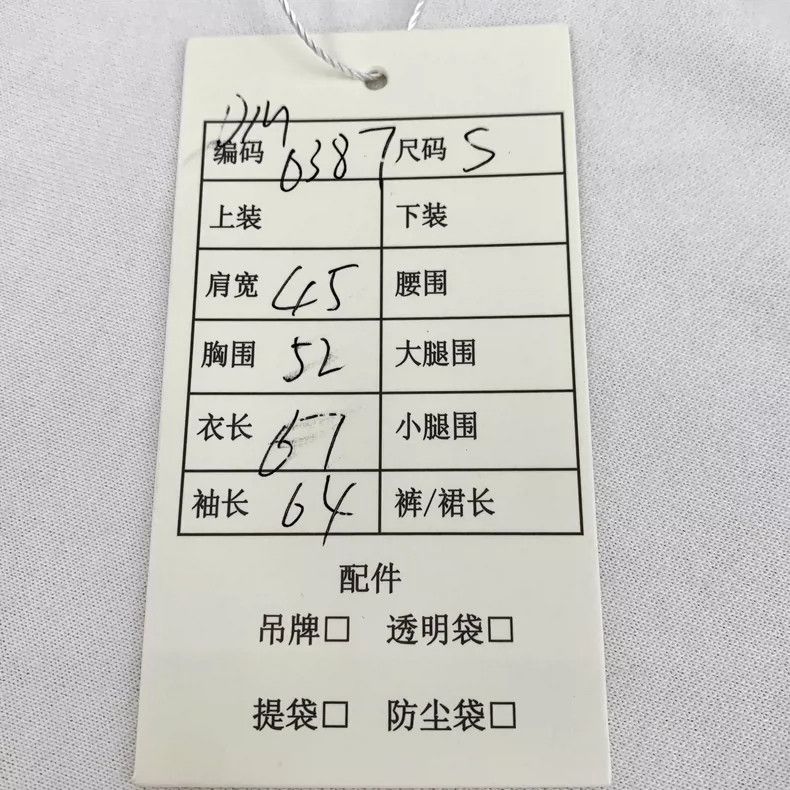 编码 0387 尺码 S
上装 下装
肩宽 45 腰围
胸围 52 大腿围
衣长 67 小腿围
袖长 64 裤/裙长
配件
吊牌□ 透明袋□
提袋□ 防尘袋□